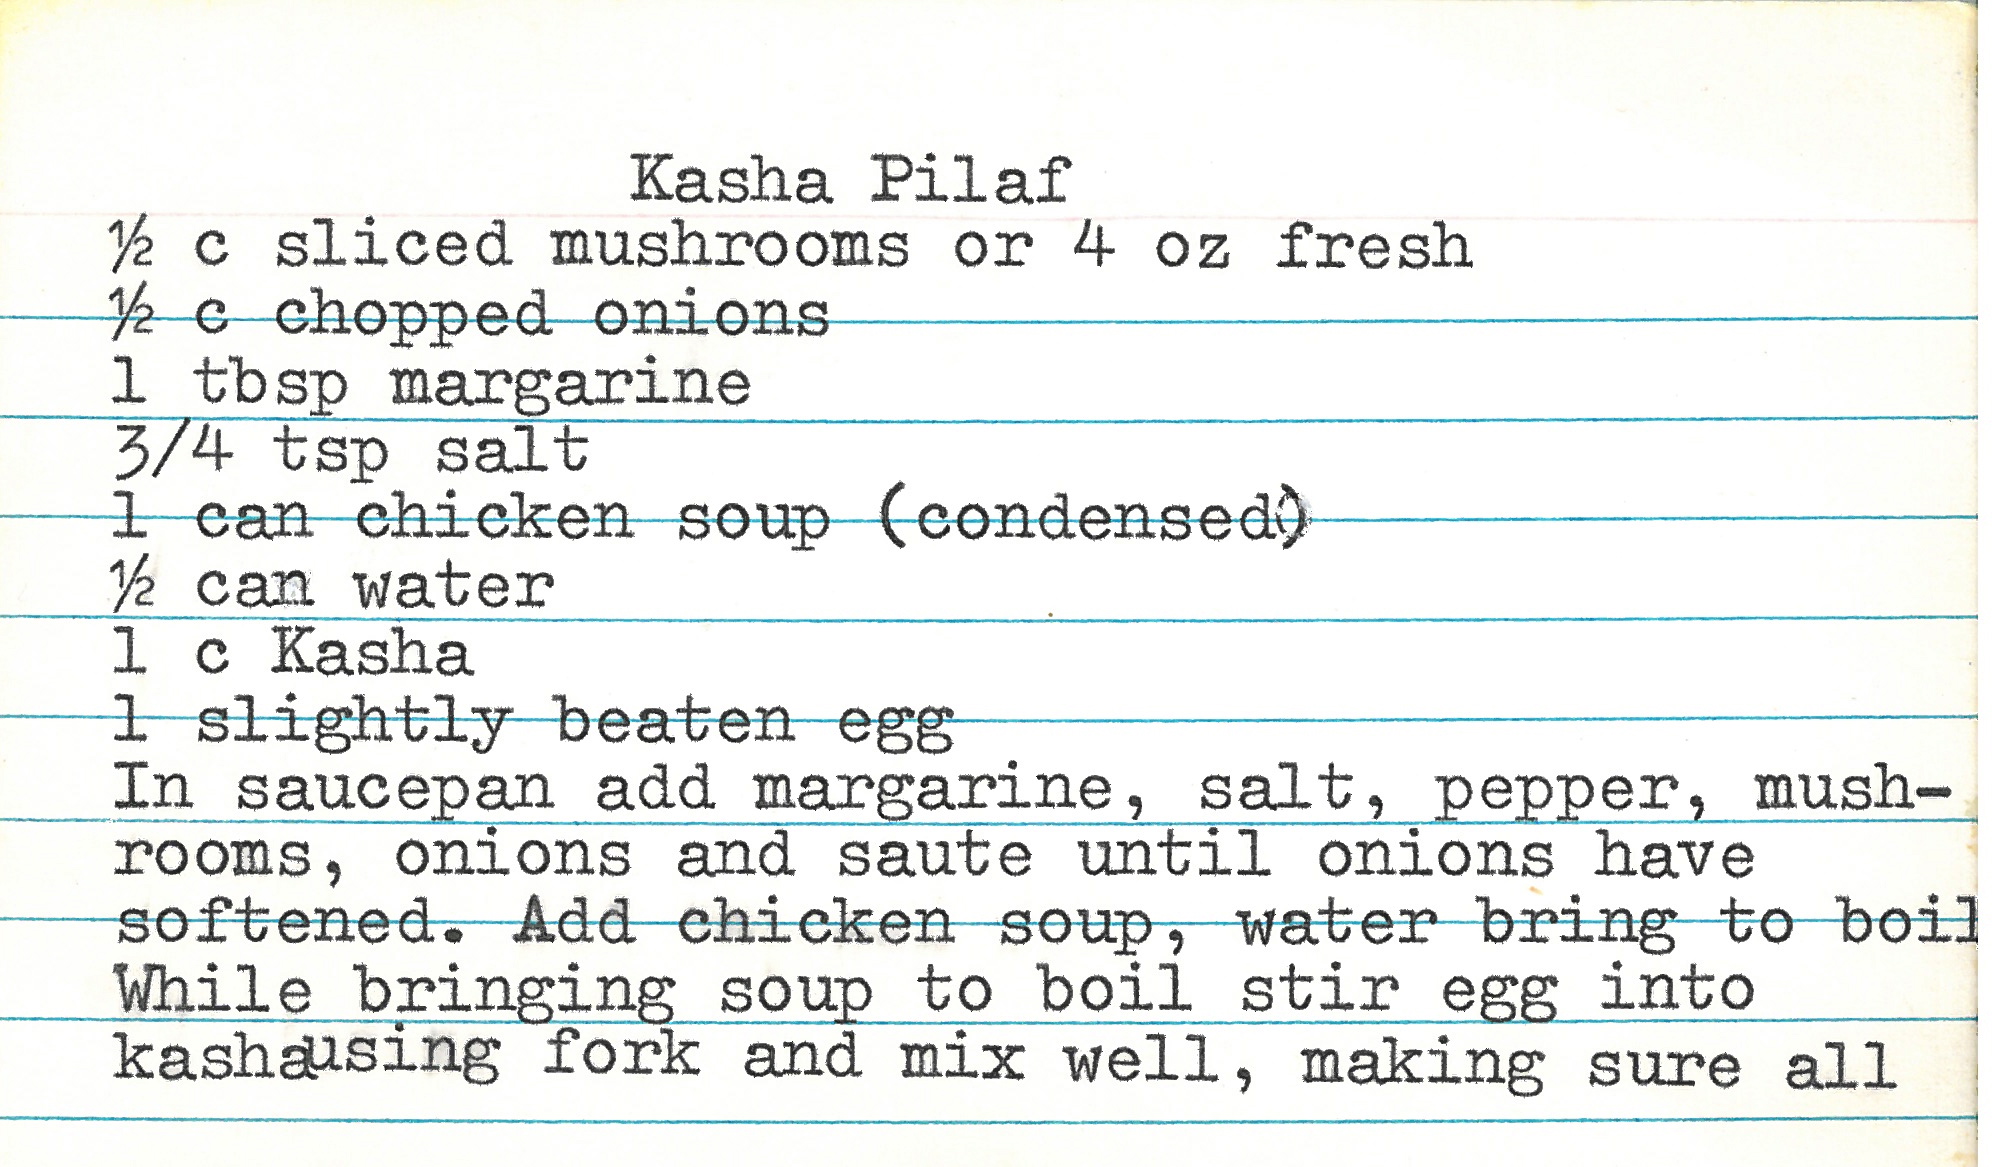 Kasha Pilaf
½ c sliced mushrooms or 4 oz fresh
½ c chopped onions
1 tbsp margarine
3/4 tsp salt
1 can chicken soup (condensed)
½ can water
1 c Kasha
1 slightly beaten egg
In saucepan add margarine, salt, pepper, mush-
rooms, onions and saute until onions have
softened. Add chicken soup, water bring to boil
While bringing soup to boil stir egg into
kashausing fork and mix well, making sure all